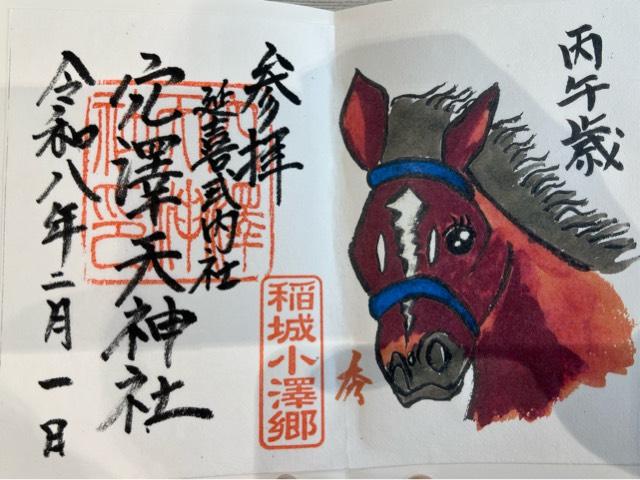 丙午歳
参拝
延喜式内社
穴澤天神社
令和八年二月一日
稲城小澤郷
秀